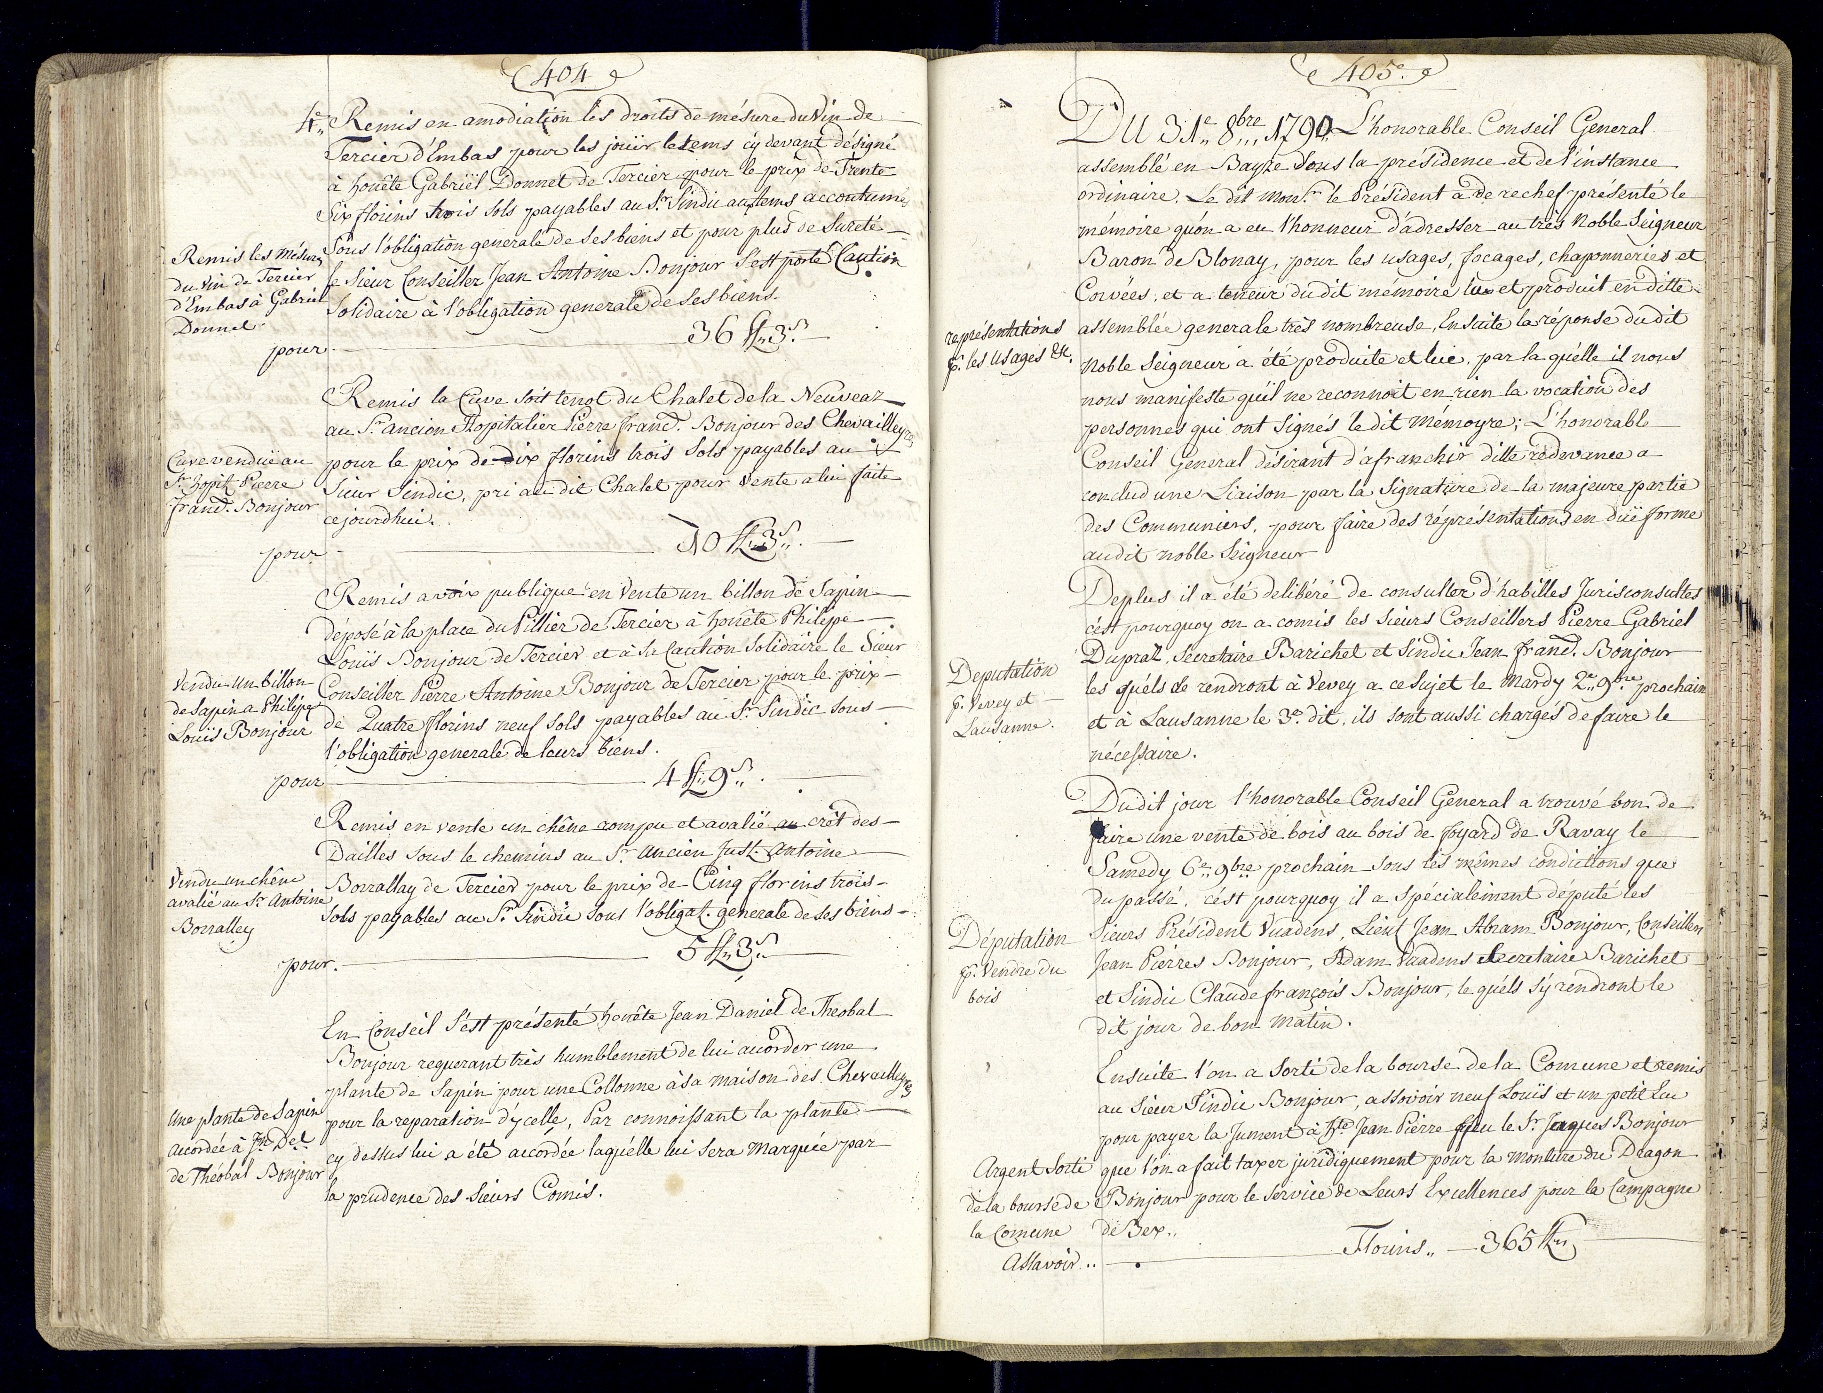 404
4.e Remis en amodiation les droits de mésure du Vin de
Tercier d'Embas pour les joüir le tems cÿ devant désigné
à hoñête Gabriël Donnet de Tercier pour le prix de Trente
Six florins trois sols payables au Sr. Sindic au tems accoutumé
Sous l'obligation generale de ses biens et pour plus de Sureté
le Sieur Conseiller Jean Antoine Bonjour S'est porté Caution
Solidaire à l'obligation generale de ses biens.
Remis les Mésures
du Vin de Tercier
d'Embas à Gabriel
Donnet
pour 36 fl. 3 s.
Remis la Cuve soit tenot du Chalet de la Neuveaz
au Sr. ancien Hopitalier Pierre franc̃. Bonjour des Chevailleyres
pour le prix de dix florins trois Sols payables au
Sieur Sindic, pri au dit Chalet pour Vente a lui faite
cejourdhui.
Cuve vendüe au
Sr. hopit. Pierre
franc̃. Bonjour
pour 10 fl. 3 s.
Remis a voix publique en Vente un billon de Sapin
déposé à la place du Pillier de Tercier à hoñête Philipe
Louïs Bonjour de Tercier et à Sa Caution Solidaire le Sieur
Conseiller Pierre Antoine Bonjour de Tercier pour le prix
de Quatre florins neuf sols payables au Sr. Sindic sous
l'obligation generale de leurs biens.
Vendu un billon
de Sapin a Philipe
Louïs Bonjour
pour 4 fl. 9 s.
Remis en vente un chêne rompu et avalié au crêt des
Dailles sous le chemins au Sr. ancien Just. Antoine
Borrallay de Tercier pour le prix de Cinq florins trois
sols payables au Sr. Sindic sous l'obligat. generale de ses biens
Vendu un chêne
avalié au Sr. Antoine
Borralley
pour. 5 fl. 3 s.
En Conseil S'est présenté hoñête Jean Daniel de Theobal
Bonjour requerant très humblement de lui accorder une
plante de Sapin pour une Collonne à sa maison des Chevailleyres
pour la reparation d'ÿcelle, Par connoissant la plante
cy dessus lui a été accordée laquelle lui Sera marquée par
la prudence des Sieurs Comis.
Une plante de Sapin
accordée à Jn. Del.
de Théobal Bonjour
405.
Du 31.e 8bre 1790. L'honorable Conseil General
assemblé en Bayse sous la présidence et de l'instance
ordinaire. Le dit Monsr. le Président a derechef présenté le
mémoire qu'on a eu l'honneur d'adresser au très Noble Seigneur
Baron de Blonay, pour les usages, focages, chaponneries et
Corvées, et a teneur du dit mémoire lüe et produit en ditte
assemblée generale très nombreuse, Ensuite la réponse du dit
Noble Seigneur a été produite et lüe, par la quelle il nous
nous manifeste qu'il ne reconnoit en rien la vocation des
personnes qui ont Signés le dit Mémoyre; L'honorable
Conseil General désirant d'afranchir ditte redevance a
conclud une Liaison par la Signature de la majeure partie
des Communiers, pour faire des réprésentations en düe forme
audit noble Seigneur
représentations
pr. les Usages &c.
Deplus il a été deliberé de consulter d'habilles Jurisconsultes
c'est pourquoy on a comis les Sieurs Conseillers Pierre Gabriel
Dupraz, Secretaire Barichet et Sindic Jean franc̃. Bonjour
les quéls se rendront à Vevey a ce Sujet le Mardy 2.e 9bre prochain
et à Lausanne le 3.e dit, ils sont aussi charges de faire le
nécessaire.
Deputation
pr. Vevey et
Lausanne.
Dudit jour l'honorable Conseil General a trouvé bon de
faire une vente de bois au bois de foyard de Ravay le
Samedy 6.e 9bre prochain sous les mêmes condictions que
du passé, c'est pourquoy il a Spécialeiment député les
Sieurs Président Vuadens, Lieut. Jean Abram Bonjour, Conseillers
Jean Piérres Bonjour, Adam Vuadens Secretaire Barichet
et Sindic Claude françois Bonjour, le quéls s'ÿ rendront le
dit jour de bon matin.
Députation
pr. Vendre du
bois
Ensuite l'on a Sorti de la bourse de la Comune et remis
au Sieur Sindic Bonjour, assovoir neuf Louïs et un petit Ecu
pour payer la Jument à hte. Jean Pierre ffeu le Sr. Jaques Bonjour
que l'on a fait taxer juridiquement pour la monture du Dragon
Bonjour pour le Service de Leurs Excellences pour la Campagne
de Bex.
Argent Sorti
de la bourse de
la Comune
Assavoir.. Florins 365 fl.